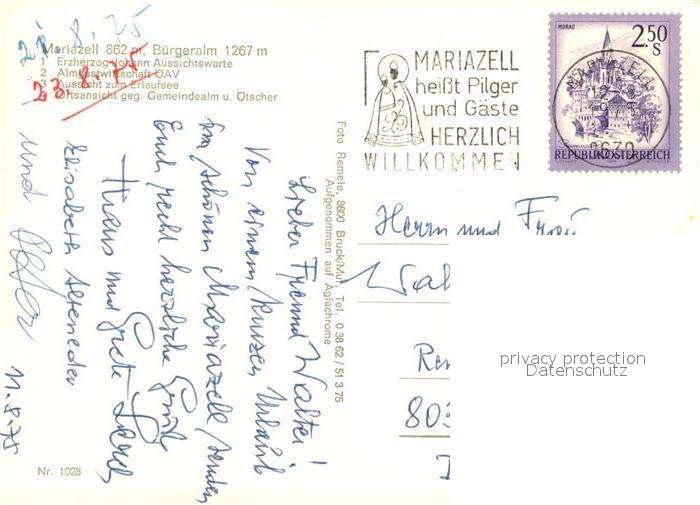 21.8.75
Mariazell 862 m, Bürgeralm 1267 m
1 Erzherzog Johann Aussichtswarte
2 Almgastwirtschaft ÖAV
3 Aussicht zum Erlaufsee
4 Ortsansicht geg. Gemeindealm u. Ötscher
23.8.75
MARIAZELL
heißt Pilger
und Gäste
HERZLICH
WILLKOMMEN
MURAU
2.50
S
MARIAZELL
8630
REPUBLIK ÖSTERREICH
Foto Remele, 8600 Bruck/Mur, Tel. 0 38 62 / 51 3 75
Aufgenommen auf Agfachrome
Lieber Freund Walter!
Von einem kurzen Urlaub
im schönen Mariazell senden
Euch recht herzliche Grüße
Hans und Grete
Elisabeth
und Peter
11.8.75
Herrn und Frau
Wal
803
privacy protection
Datenschutz
Nr. 1028